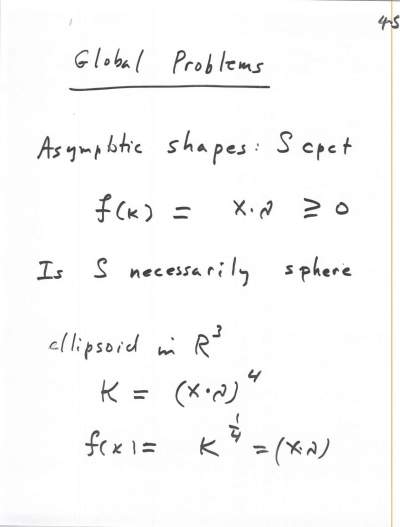 45
Global Problems
Asymptotic shapes: S cpct
f(K) = X·ν ≥ 0
Is S necessarily sphere
ellipsoid in R³
K = (X·ν)⁴
f(x) = K^{1/4} = (X·ν)